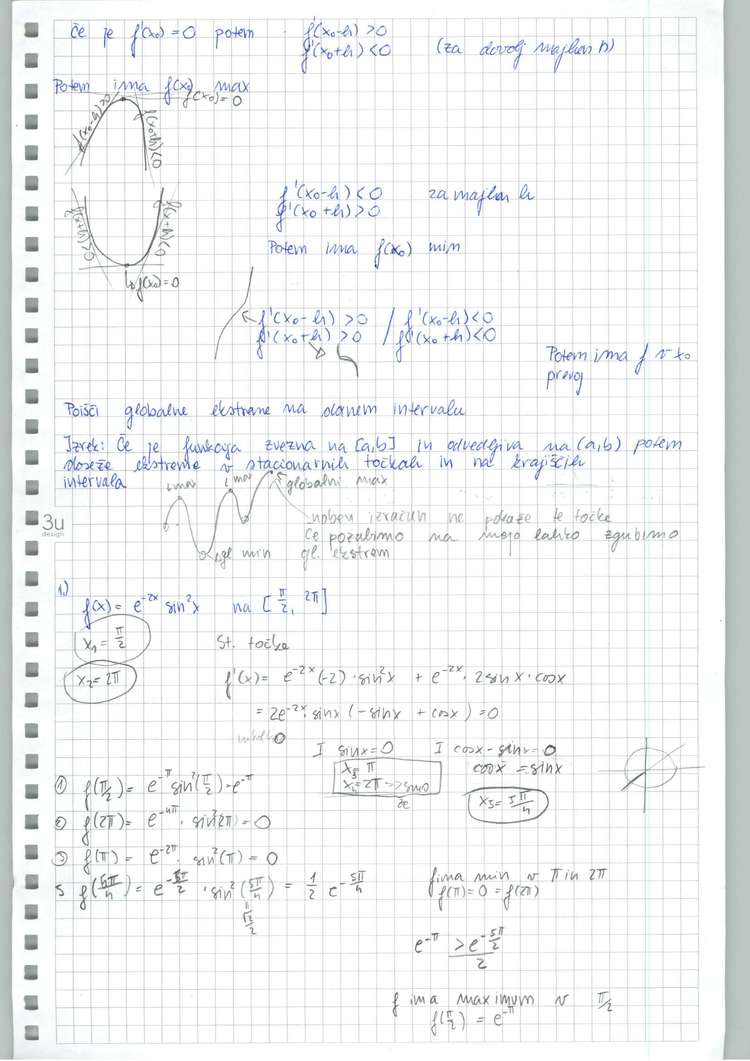 Če je f'(x₀) = 0 potem f'(x₀-h) > 0
f'(x₀+h) < 0 (za dovolj majhen h)
Potem ima f(x₀) max
f(x₀) = 0
f(x₀-h)>0
f(x₀+h)<0
f'(x₀-h) < 0 za majhen h
f'(x₀+h) > 0
Potem ima f(x₀) min
f(x+h)>0
f(x+h)<0
f(x₀)=0
f'(x₀-h) > 0 / f'(x₀-h) < 0
f'(x₀+h) > 0 / f'(x₀+h) < 0
Potem ima f v x₀
prevoj
Poišči globalne ekstreme na danem intervalu
Izrek: Če je funkcija zvezna na [a,b] in odvedljiva na (a,b) potem
doseže ekstreme v stacionarnih točkah in na krajiščih
intervala
l max l max globalni max
3u
design
noben izračun ne pokaže te točke
Če pozabimo na mojo lahko zgubimo
gl. ekstrem
gl min
1.)
f(x) = e^{-2x} sin²x na [π/2, 2π]
x₁ = π/2 St. točke
x₂ = 2π f'(x) = e^{-2x}(-2)·sin²x + e^{-2x}·2sinx·cosx
= 2e^{-2x}·sinx (-sinx + cosx) = 0
I sinx = 0 I cosx - sinx = 0
x₃ = π cosx = sinx
x₄ = 2π
že
x₅ = 5π/4
① f(π/2) = e^{-π} sin²(π/2) = e^{-π}
② f(2π) = e^{-4π} · sin²2π = 0
③ f(π) = e^{-2π} · sin²(π) = 0
5 f(5π/4) = e^{-5π/2} · sin²(5π/4) = 1/2 e^{-5π/4}
√2/2
f ima min v π in 2π
f(π) = 0 = f(2π)
e^{-π} > e^{-5π/2}/2
f ima maximum v π/2
f(π/2) = e^{-π}